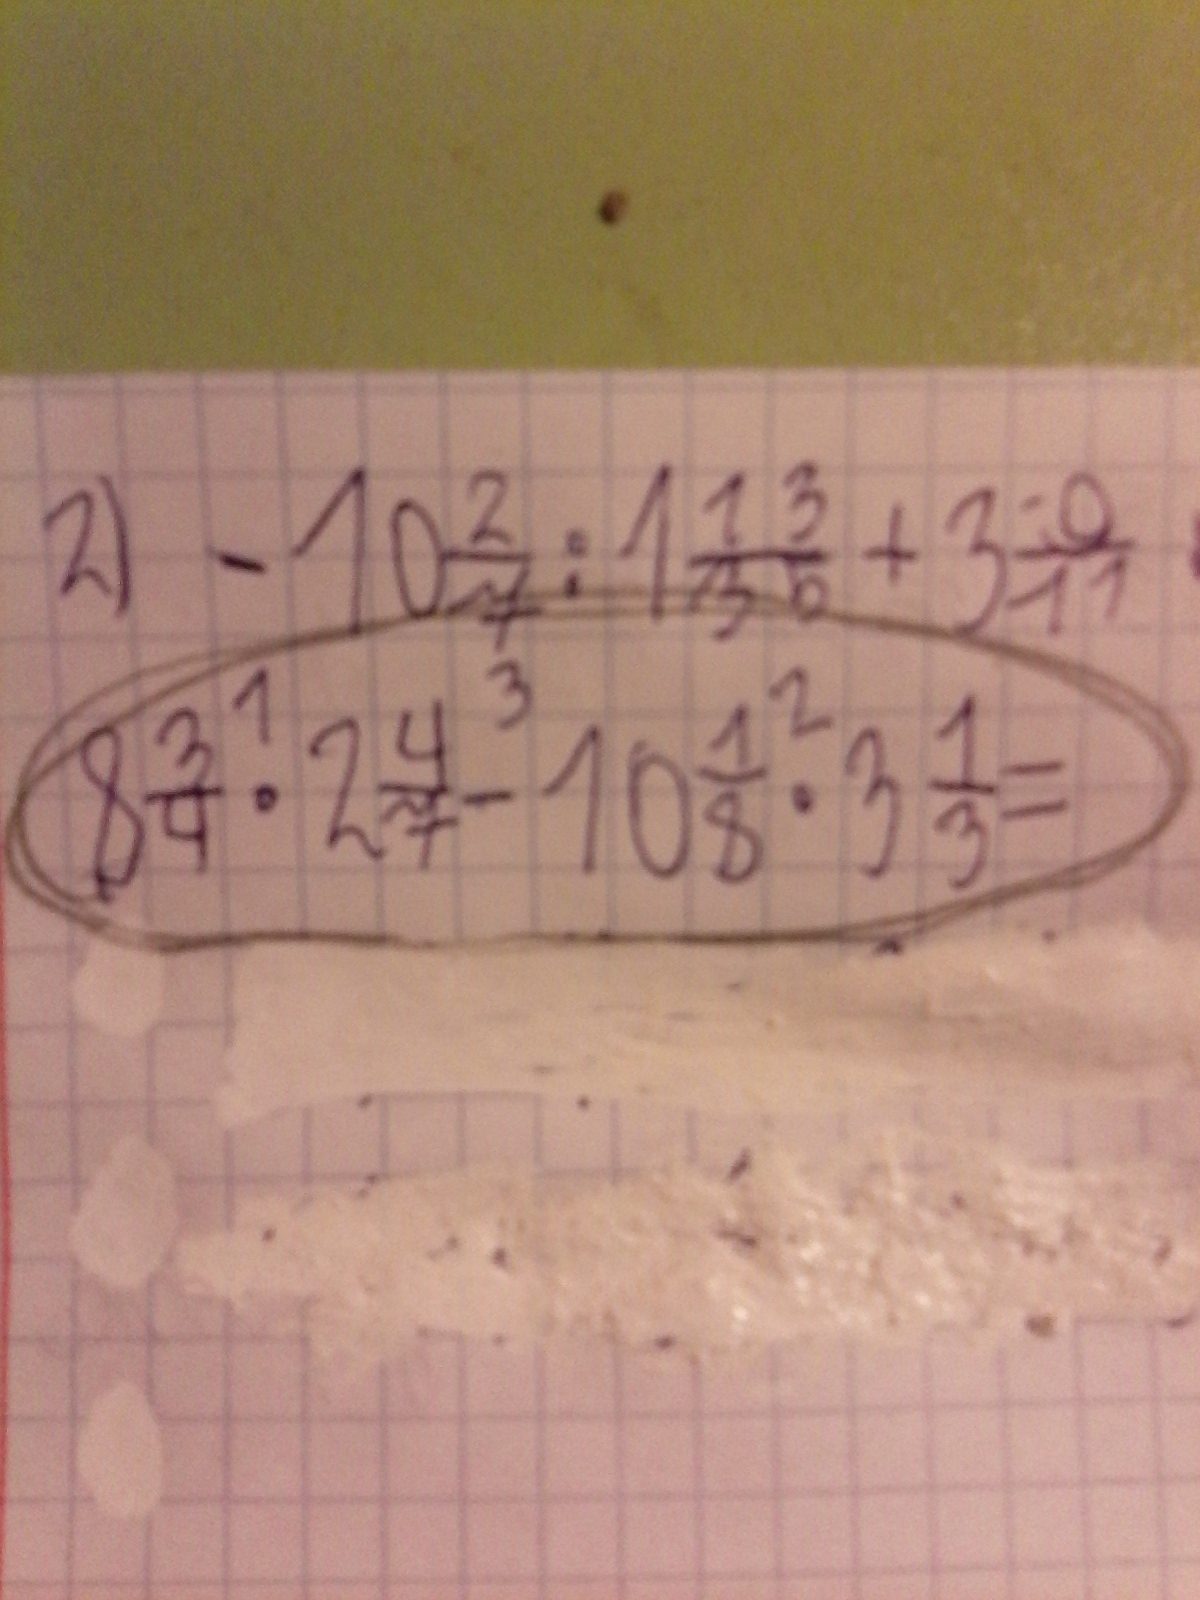 2) - 10 2/7 : 1 13/36 + 3 -9/11
8 3/4 · 2 4/7 - 10 1/8 · 3 1/3 =
1 3 2